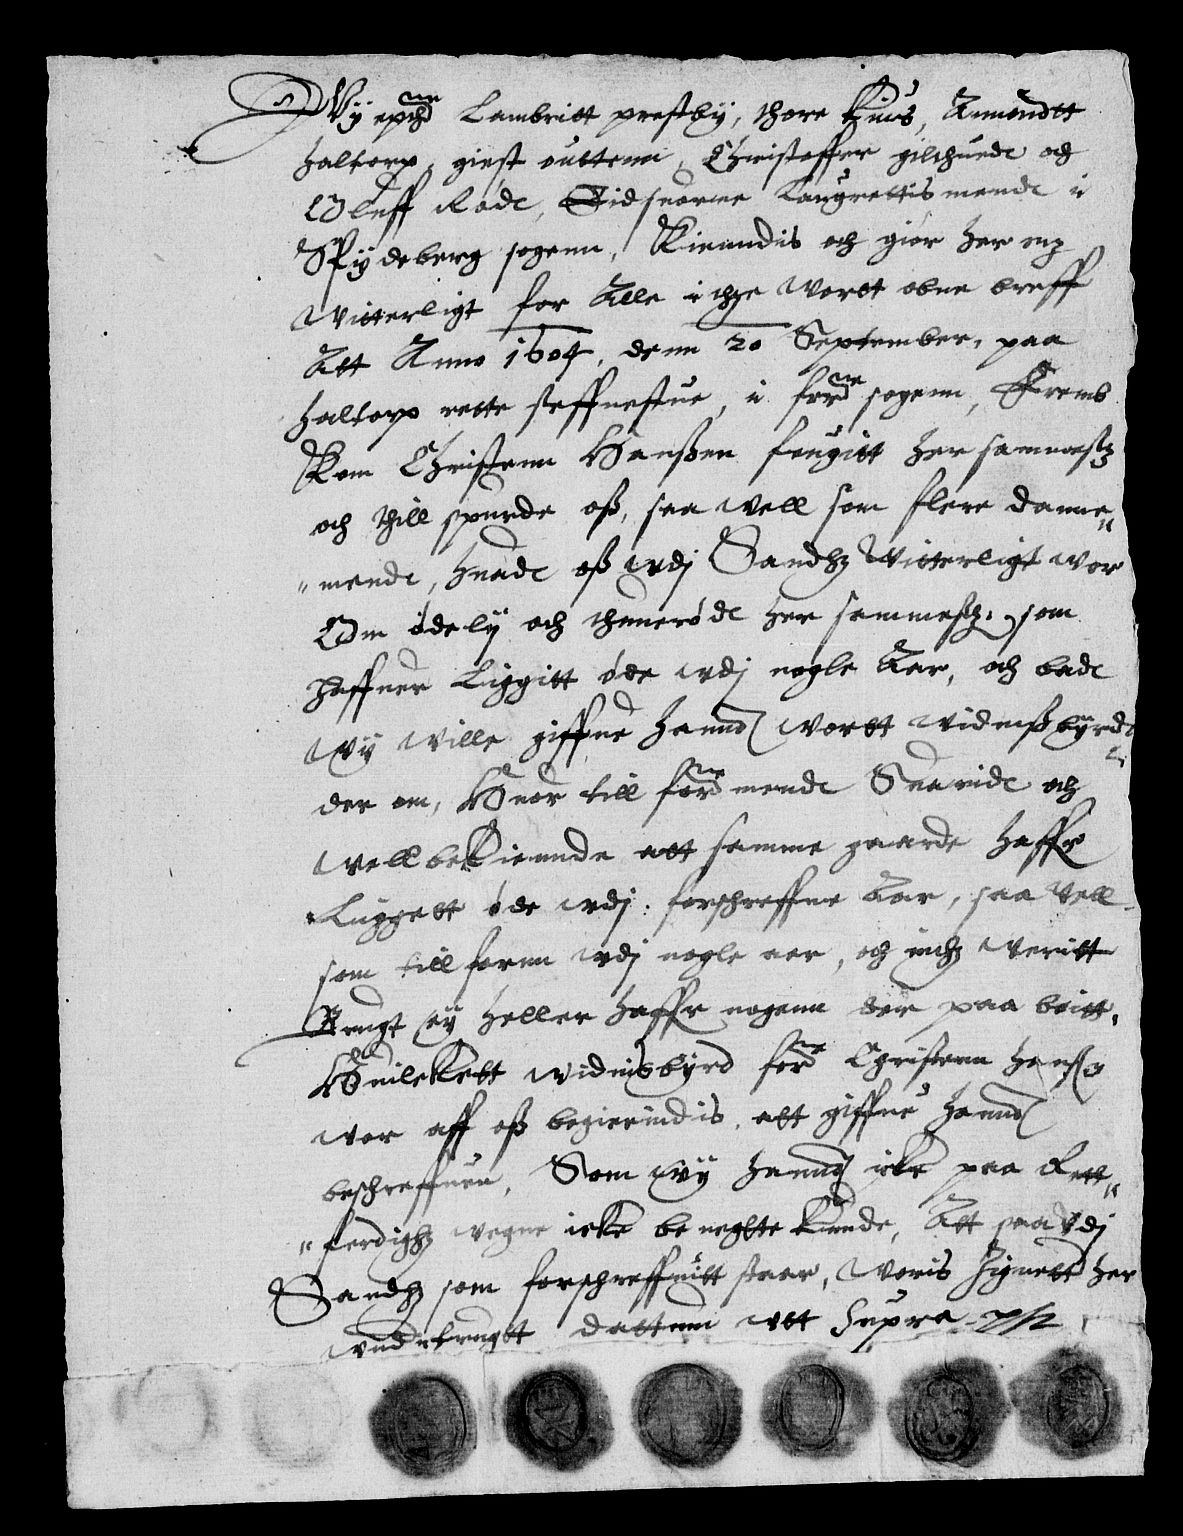 Wÿ epthne Lambritt prestbÿ, thore Kius, Amundtt
haltorp, giest outtenn, Christoffer gilchuede och
Oluff Røde, Eidsuorne Laugrettis mende i
Spÿdeberg sogenn, Kiendis och giør her mz
Witterligt for Alle i thze wortt obne breff
Att Anno 1604, denn 20 September, paa
haltorp rette steffnestue, i forne sogenn, Frem
Kom Christenn Hanßen fougitt her sammestz
och thill spurde oß, saa well som flere danne
mende, huade oß vdj Sandhz Witterligt wor
Om ødelÿ och thuerøde her sammestz, som
haffuer Liggitt øde vdj nogle Aar, och bade
wÿ wille giffue hannd wortt widnißbÿrd
der om, Huor till forne mende Suaride och
well bekiennde att samme gaarde haffr
Liggett øde vdj forschreffne Aar, saa vell
som till forn vdj nogle aar, och inthz weritt
Brugt eÿ heller haffr nogenn der paa boitt,
Huilckett widnisbÿrd forne Christenn Hansen
wor aff oß begierindis, att giffue hannd
beschreffuen, Som wÿ hannd icke paa Rett
ferdighz wegne icke be negtte Kunde, Att saa vdj
Sandhz som forschreffuitt staar, woris Zignett her
vnder trugtt dattum vtt supra